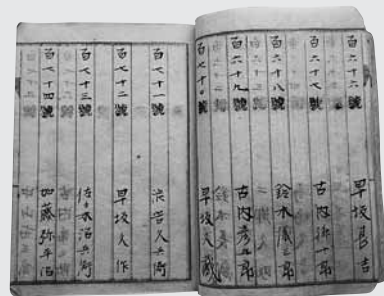 百六十六號 早坂長吉
百六十七號 古内 十郎
百六十八號 鈴木 三郎
百六十九號 古内彦五郎
百七十號 早坂
百七十一號 渋谷久兵衛
百七十二號 早坂大作
百七十三號 佐々木治兵衛
百七十四號 加藤弥平治